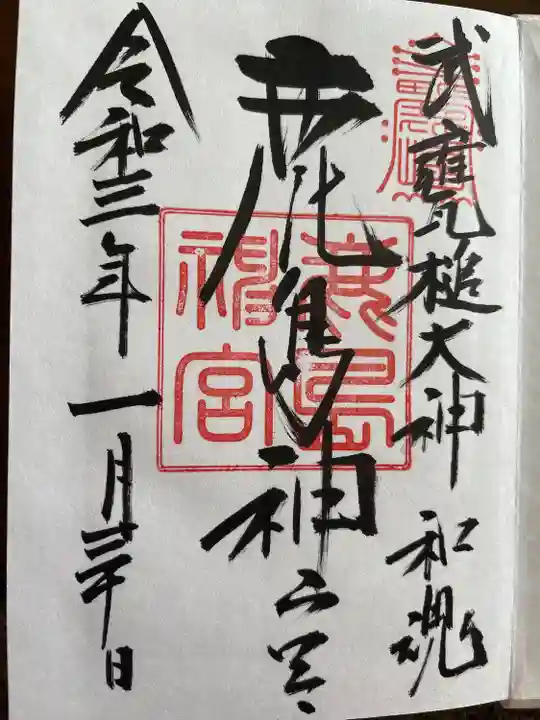 武甕槌大神 和魂
鹿島神宮
鹿島神宮
令和三年一月三十日